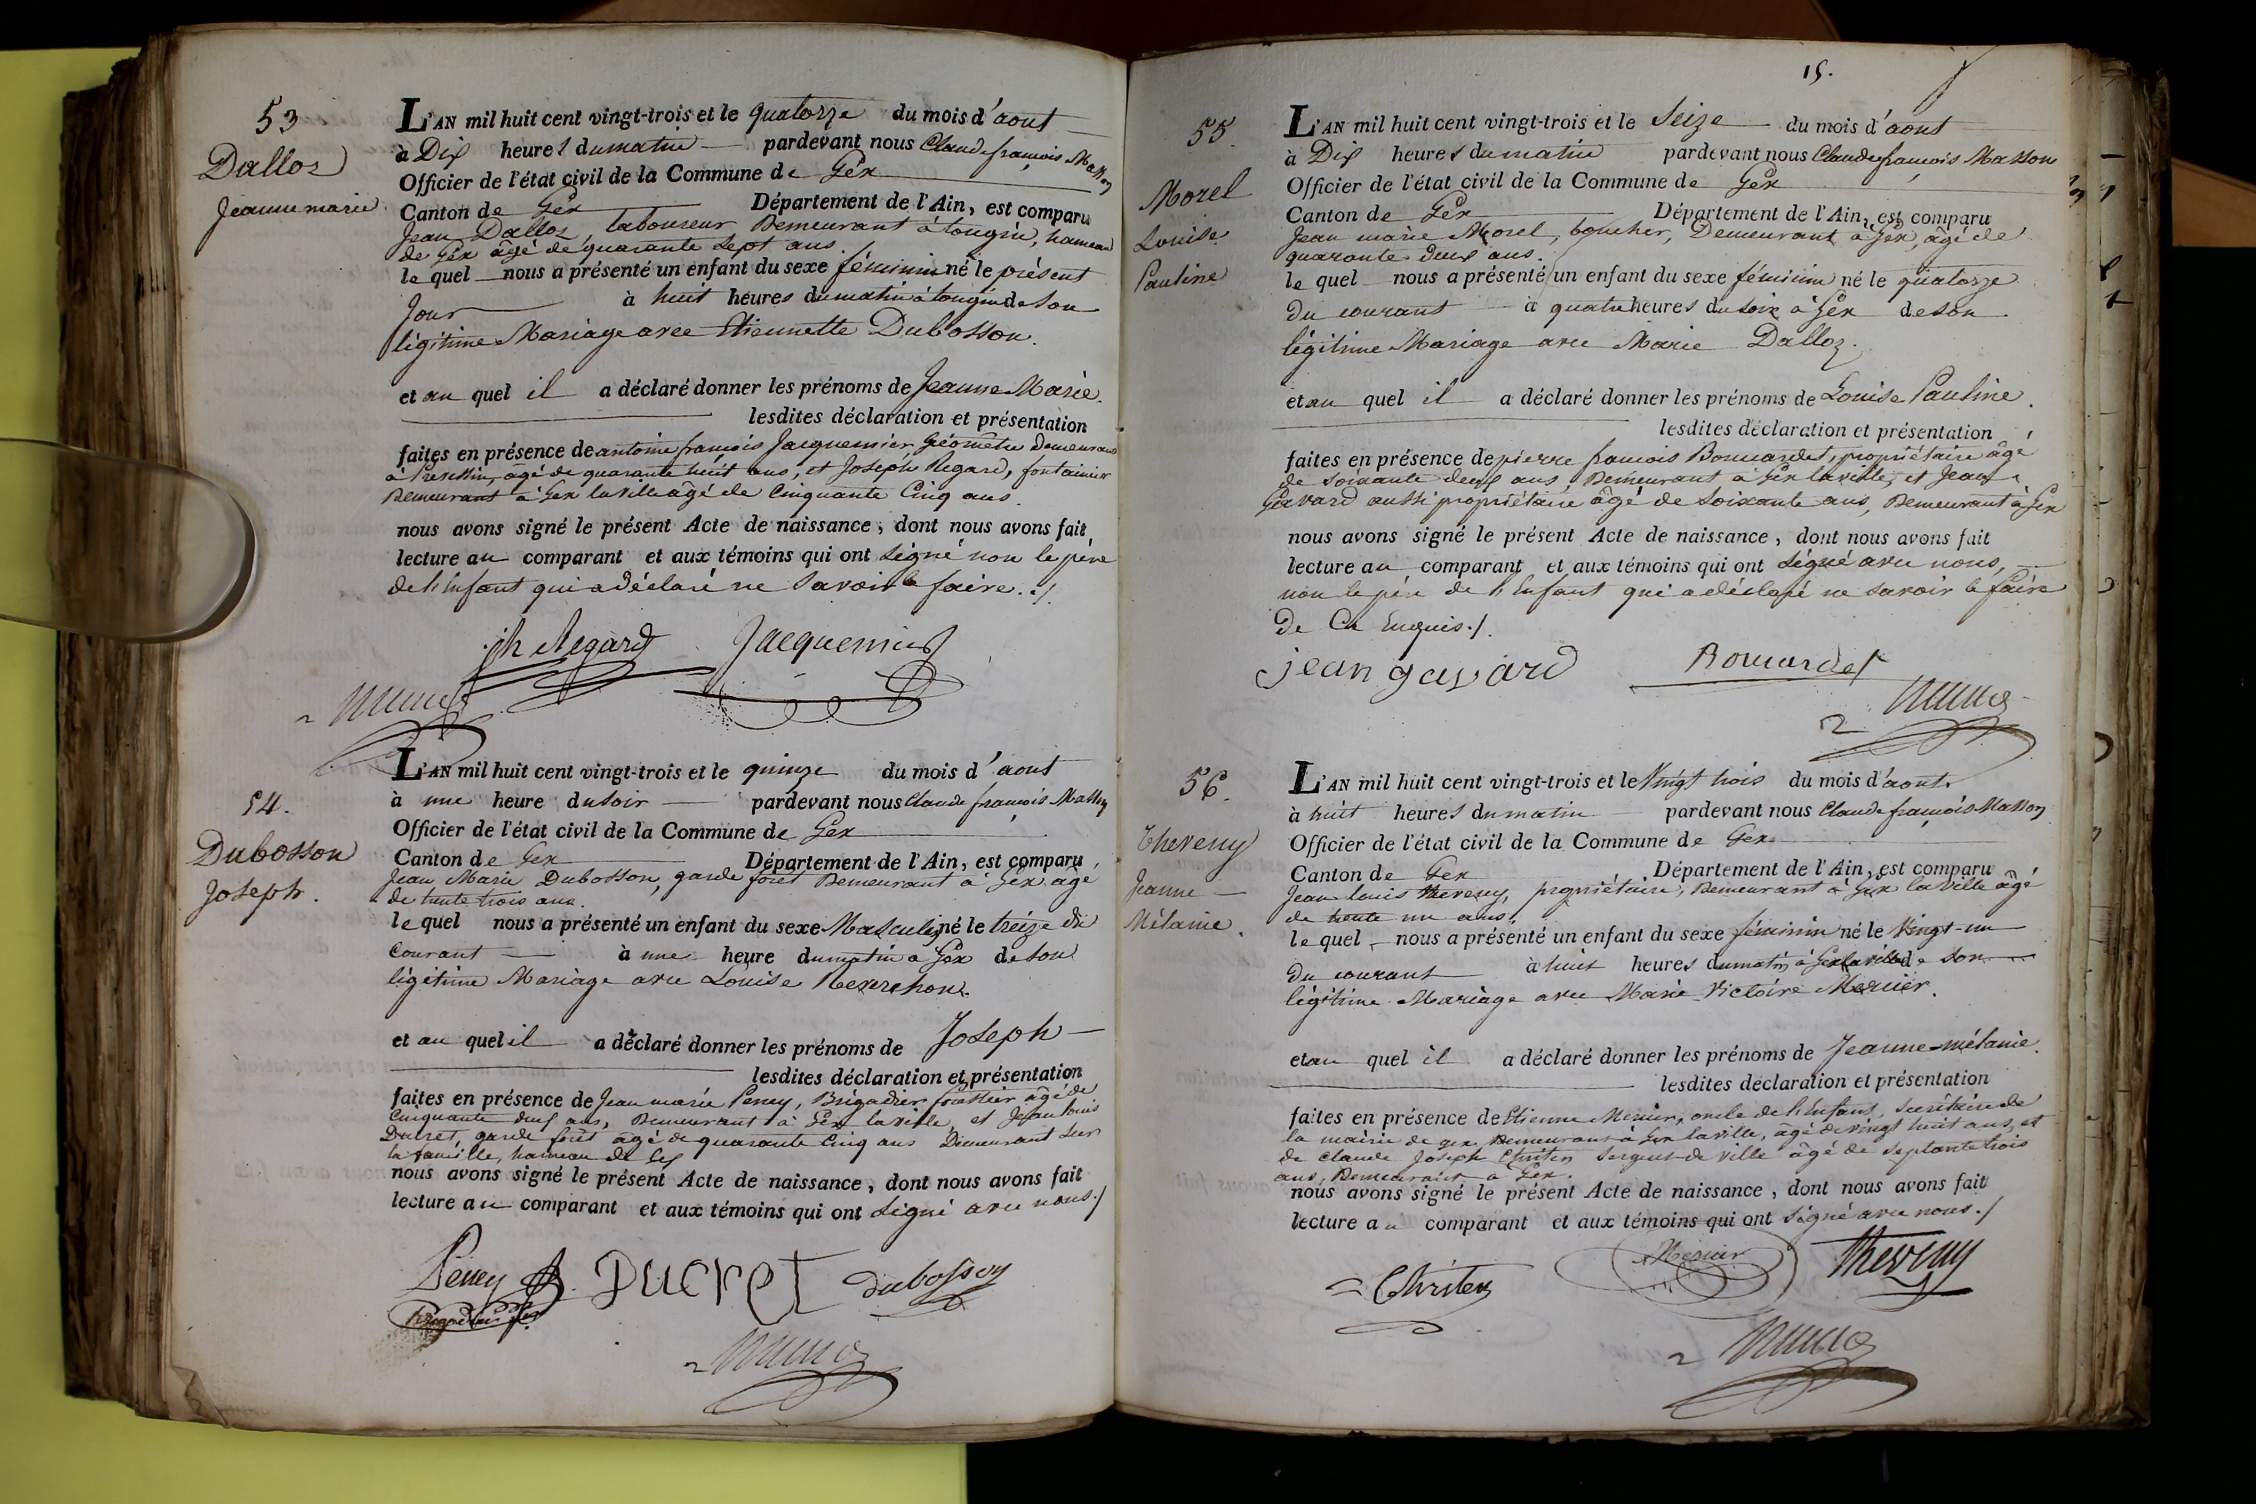 53
Dalloz
Jeanne marie
L'AN mil huit cent vingt-trois et le quatorze du mois d'aout
à Dix heures du matin pardevant nous Claude françois Masson
Officier de l'état civil de la Commune de Gex
Canton de Gex Département de l'Ain, est comparu
Jean Dalloz, laboureur Demeurant à tougin, hameau
de Gex âgé de quarante sept ans.
le quel nous a présenté un enfant du sexe féminin né le présent
Jour à huit heures du matin à tougin de son
légitime Mariage avec Etiennette Dubosson.
et au quel il a déclaré donner les prénoms de Jeanne Marie.
lesdites déclaration et présentation
faites en présence de antoine françois Jacquemier Géomètre Demeurant
à Pressin, âgé de quarante huit ans, et Joseph Regard, fontainier
Demeurant à Gex la ville âgé de Cinquante Cinq ans.
nous avons signé le présent Acte de naissance, dont nous avons fait
lecture au comparant et aux témoins qui ont signé non le père
de l'Enfant qui a déclaré ne savoir le faire. ./.
jh Regard Jacquemier
54.
Dubosson
Joseph.
L'AN mil huit cent vingt-trois et le quinze du mois d'aout
à une heure du soir pardevant nous Claude françois Masson
Officier de l'état civil de la Commune de Gex
Canton de Gex Département de l'Ain, est comparu
Jean Marie Dubosson, garde forêt Demeurant à Gex âgé
de trente trois ans.
le quel nous a présenté un enfant du sexe Masculin né le treize du
Courant à une heure du matin à Gex de son
légitime Mariage avec Louise
et au quel il a déclaré donner les prénoms de Joseph
lesdites déclaration et présentation
faites en présence de Jean marie Peney, Brigadier forestier âgé de
Cinquante deux ans, Demeurant à Gex la ville, et Jean louis
Ducret, garde forêt âgé de quarante Cinq ans Demeurant sur
la hameau de
nous avons signé le présent Acte de naissance, dont nous avons fait
lecture au comparant et aux témoins qui ont signé avec nous./
Peney Ducret dubosson
15.
55.
Morel
Louise
Pauline
L'AN mil huit cent vingt-trois et le Seize du mois d'aout
à Dix heures du matin pardevant nous Claude françois Masson
Officier de l'état civil de la Commune de Gex
Canton de Gex Département de l'Ain, est comparu
Jean marie Morel, boucher, Demeurant à Gex, âgé de
quarante deux ans.
le quel nous a présenté un enfant du sexe féminin né le quatorze
du courant à quatre heures du soir à Gex de son
légitime Mariage avec Marie Dalloz.
et au quel il a déclaré donner les prénoms de Louise Pauline.
lesdites déclaration et présentation
faites en présence de pierre françois Boumardet, propriétaire âgé
de soixante deux ans Demeurant à Gex la ville, et Jean
Gavard aussi propriétaire âgé de soixante ans, Demeurant à Gex
nous avons signé le présent Acte de naissance, dont nous avons fait
lecture au comparant et aux témoins qui ont signé avec nous,
non le père de l'Enfant qui a déclaré ne savoir le faire
De Ce Enquis./.
jean gavard Boumardet
56.
Theveny
Jeanne
Mélanie.
L'AN mil huit cent vingt-trois et le Vingt trois du mois d'aout
à huit heures du matin pardevant nous Claude françois Masson
Officier de l'état civil de la Commune de Gex
Canton de Gex Département de l'Ain, est comparu
Jean louis theveny, propriétaire, Demeurant à Gex la ville âgé
de trente un ans.
le quel nous a présenté un enfant du sexe féminin né le Vingt-un
du courant à huit heures du matin à Gex la ville de son
légitime Mariage avec Marie Victoire Mercier.
et au quel il a déclaré donner les prénoms de Jeanne-mélanie.
lesdites déclaration et présentation
faites en présence de Etienne Mercier, oncle de l'Enfant, secrétaire de
la mairie de gex, Demeurant à Gex la ville, âgé de vingt huit ans, et
de Claude Joseph Christen sergent de ville âgé de septante trois
ans, Demeurant à Gex.
nous avons signé le présent Acte de naissance, dont nous avons fait
lecture au comparant et aux témoins qui ont signé avec nous./
Christen Mercier theveny